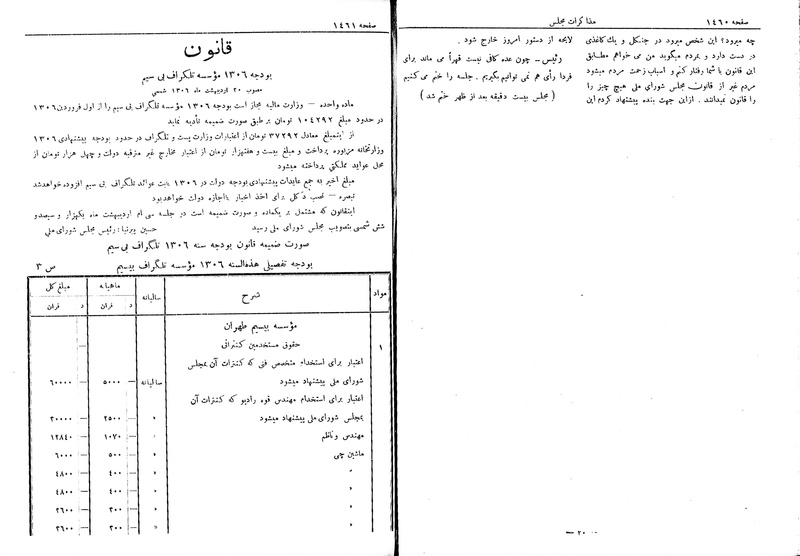 صفحه ۱٤٦۰
مذاکرات مجلس
چه میرود؟ این شخص میرود در جنگل و یك کاغذی
در دست دارد و بمردم میگوید من می خواهم مطابق
این قانون با شما رفتار کنم و اسباب زحمت مردم میشود
مردم غیر از قانون مجلس شورای ملی هیچ چیز را
را قانون نمیدانند . از این جهت بنده پیشنهاد کردم این
لایحه از دستور امروز خارج شود .
رئیس ـ چون عده کافی نیست قهراً می ماند برای
فردا رأی هم نمی توانیم بگیریم . جلسه را ختم می کنیم
( مجلس بیست دقیقه بعد از ظهر ختم شد )
— ۲۰ —
صفحه ۱٤٦۱
قانون
بودجه ۱۳۰٦ مؤسسه تلگراف بی سیم
مصوب ۲۰ اردیبهشت ماه ۱۳۰٦ شمسی
ماده واحده ـ وزارت مالیه مجاز است بودجه ۱۳۰٦ مؤسسه تلگراف بی سیم را از اول فروردین ۱۳۰٦
در حدود مبلغ ۱۰٤۲۹۲ تومان بر طبق صورت ضمیمه تأدیه نماید
از اینمبلغ معادل ۳۷۲۹۲ تومان از اعتبارات وزارت پست و تلگراف در حدود بودجه پیشنهادی ۱۳۰٦
وزارتخانه مزبوره پرداخت و مبلغ بیست و هفتهزار تومان از اعتبار مخارج غیر مترقبه دولت و چهل هزار تومان از
محل عواید مملکتی پرداخته میشود
مبلغ اخیر به جمع عایدات پیشنهادی بودجه دولت در ۱۳۰٦ بابت عوائد تلگراف بی سیم افزوده خواهد شد
تبصره ـ نصب دکل برای اخذ اخبار با اجازه دولت خواهد بود
اینقانون که مشتمل بر یکماده و صورت ضمیمه است در جلسه سی ام اردیبهشت ماه یکهزار و سیصدو
شش شمسی بتصویب مجلس شورای ملی رسید رئیس مجلس شورای ملی : حسین پیرنیا
صورت ضمیمه قانون بودجه سنه ۱۳۰٦ تلگراف بی سیم
بودجه تفصیلی هذه السنه ۱۳۰٦ مؤسسه تلگراف بیسیم ص ۳
مواد شرح سالیانه ماهیانه مبلغ کل
د قران د قران
مؤسسه بیسیم طهران
۱ حقوق مستخدمین کنتراتی —
اعتبار برای استخدام متخصص فنی که کنترات آن بمجلس
شورای ملی پیشنهاد میشود سالیانه — ۵۰۰۰ — ٦۰۰۰۰
اعتبار برای استخدام مهندس قوه رادیو که کنترات آن
بمجلس شورای ملی پیشنهاد میشود » — ۲۵۰۰ — ۳۰۰۰۰
مهندس و ناظم » — ۱۰۷۰ — ۱۲۸٤۰
ماشین چی » — ۵۰۰ — ٦۰۰۰
» » — ٤۰۰ — ٤۸۰۰
» » — ٤۰۰ — ٤۸۰۰
» » — ۳۰۰ — ۳٦۰۰
» » — ۳۰۰ — ۳٦۰۰